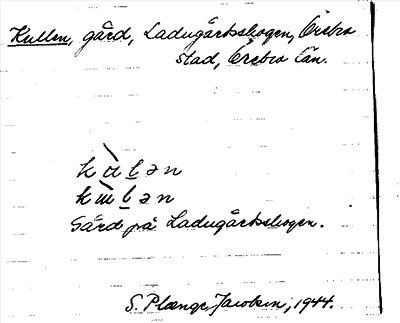 Kullen, gård, Ladugårdsskogen, Örebro
stad, Örebro län.
Gård på Ladugårdsskogen.
S. Plænge Jacobson, 1944.